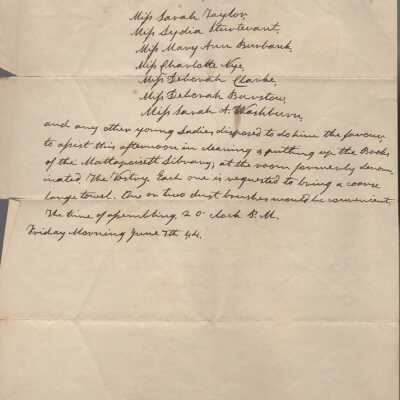 Miss Sarah Taylor,
Miss Lydia Sturtevant,
Miss Mary Ann Burbank,
Miss Charlotte Nye,
Miss Deborah Clarke,
Miss Deborah Barstow,
Miss Sarah A. Washburn,
and any other young Ladies disposed to do him the favour,
to assist this afternoon in cleaning & putting up the Books
of the Mattapoisett Library, at the room formerly denom-
inated, The Vestry. Each one is requested to bring a coarse
large towel. One or two dust brushes would be convenient.
The time of assembling, 2 O'clock P.M.
Friday Morning June 7th 44.